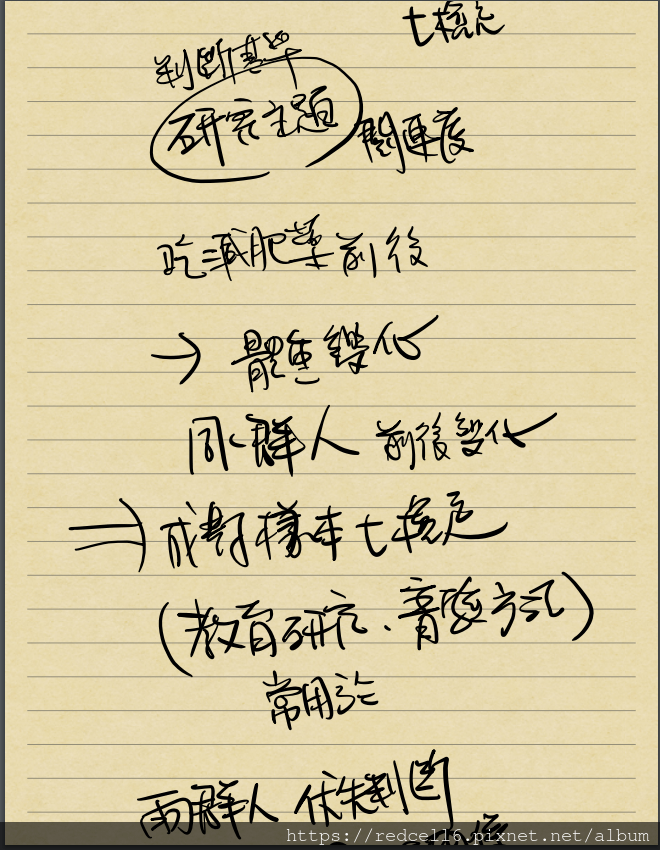 t檢定
判斷基準
研究主題 關連度
吃減肥藥前後
→ 體重變化
同一群人 前後變化
⇒ 成對樣本t檢定
(教育研究、實驗方式)
常用於
兩群人 優失判斷
https://redcell6.pixnet.net/album